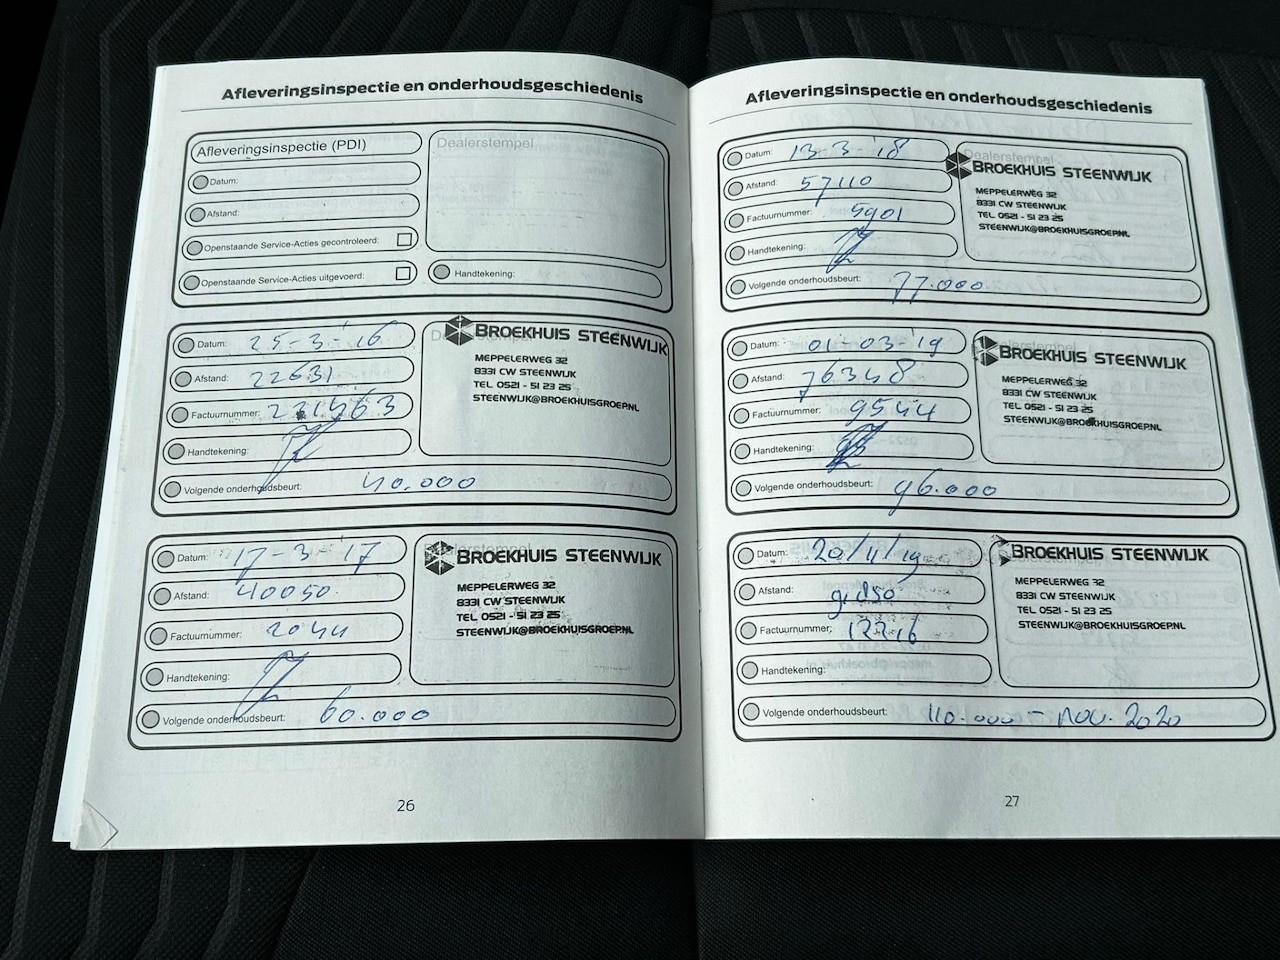 Afleveringsinspectie en onderhoudsgeschiedenis
Afleveringsinspectie (PDI)
Dealerstempel
Datum:
Afstand:
Openstaande Service-Acties gecontroleerd:
Openstaande Service-Acties uitgevoerd:
Handtekening:
Datum: 25-3-'16
Afstand: 22631
Factuurnummer:
Handtekening:
Volgende onderhoudsbeurt: 40.000
BROEKHUIS STEENWIJK
MEPPELERWEG 32
8331 CW STEENWIJK
TEL 0521 - 51 23 25
STEENWIJK@BROEKHUISGROEP.NL
Datum: 17-3-'17
Afstand: 40050
Factuurnummer: 2044
Handtekening:
Volgende onderhoudsbeurt: 60.000
Dealerstempel
BROEKHUIS STEENWIJK
MEPPELERWEG 32
8331 CW STEENWIJK
TEL 0521 - 51 23 25
STEENWIJK@BROEKHUISGROEP.NL
26
Afleveringsinspectie en onderhoudsgeschiedenis
Datum: 13-3-'18
Afstand: 57110
Factuurnummer: 5901
Handtekening:
Volgende onderhoudsbeurt: 77.000
Dealerstempel
BROEKHUIS STEENWIJK
MEPPELERWEG 32
8331 CW STEENWIJK
TEL 0521 - 51 23 25
STEENWIJK@BROEKHUISGROEP.NL
Datum: 01-03-'19
Afstand: 76348
Factuurnummer: 9544
Handtekening:
Volgende onderhoudsbeurt: 96.000
Dealerstempel
BROEKHUIS STEENWIJK
MEPPELERWEG 32
8331 CW STEENWIJK
TEL 0521 - 51 23 25
STEENWIJK@BROEKHUISGROEP.NL
Datum: 20/11/19
Afstand:
Factuurnummer: 12216
Handtekening:
Volgende onderhoudsbeurt: 110.000 - nov. 2020
Dealerstempel
BROEKHUIS STEENWIJK
MEPPELERWEG 32
8331 CW STEENWIJK
TEL 0521 - 51 23 25
STEENWIJK@BROEKHUISGROEP.NL
27